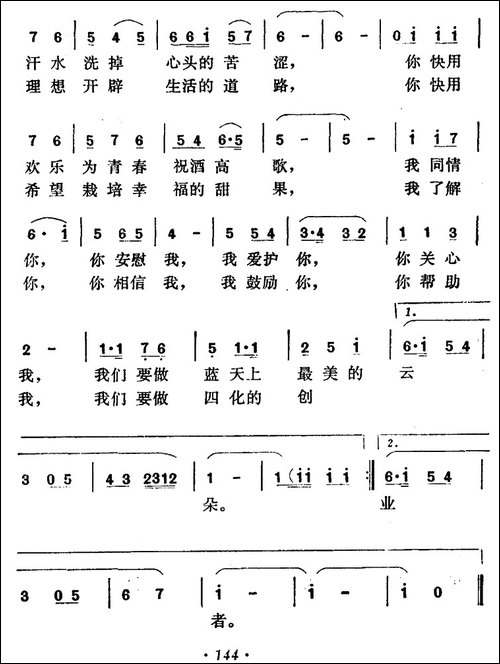 7 6 | 5 4 5 | 6 6 i 5 7 | 6 - | 6 - | 0 i i i |
汗水 洗掉 心头的苦 涩， 你快用
理想 开辟 生活的道 路， 你快用
7 6 | 5 7 6 | 5 4 6·5 | 5 - | 5 - | i i 7 |
欢乐 为青春 祝酒高 歌， 我同情
希望 栽培幸 福的甜 果， 我了解
6· i | 5 6 5 | 4 - | 5 5 4 | 3·4 3 2 | 1 1 3 |
你， 你安慰 我， 我爱护 你， 你关心
你， 你相信 我， 我鼓励 你， 你帮助
1.
2 - | 1·1 7 6 | 5 1·1 | 2 5 i | 6·i 5 4 |
我， 我们要做 蓝天上 最美的 云
我， 我们要做 四化的 创
2.
3 0 5 | 4 3 2312 | 1 - | 1 (i i i i :‖ 6·i 5 4 |
朵。 业
3 0 5 | 6 7 | i - | i - | i 0 ‖
者。
· 144 ·